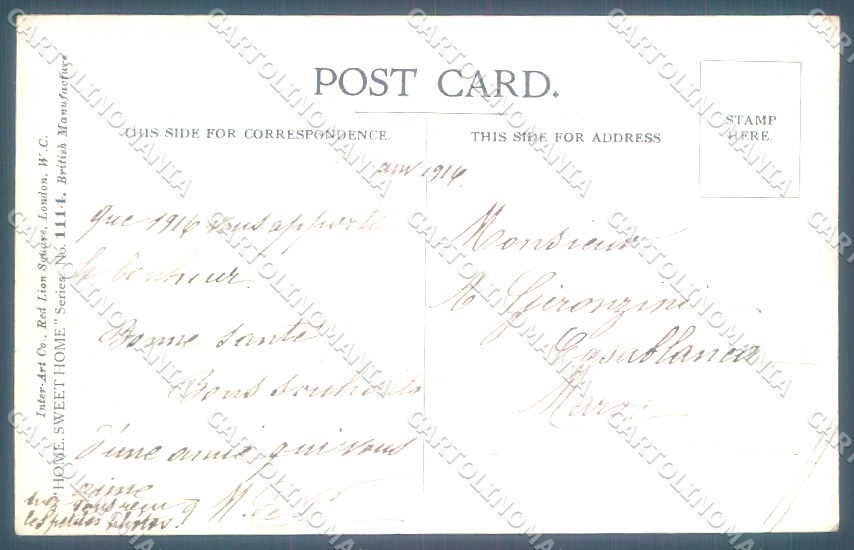 POST CARD.
THIS SIDE FOR CORRESPONDENCE.
THIS SIDE FOR ADDRESS
STAMP
HERE.
1916.
que 1916 vous apporte
le bonheur
Bonne santé
Bons souhaits
d'une amie qui vous
aime
M.
vous reçu
les petites photos?
Monsieur
Casablanca
Maroc
Inter-Art Co., Red Lion Square, London, W.C.
"HOME, SWEET HOME" Series. No. 1114. British Manufacture
CARTOLINOMANIA